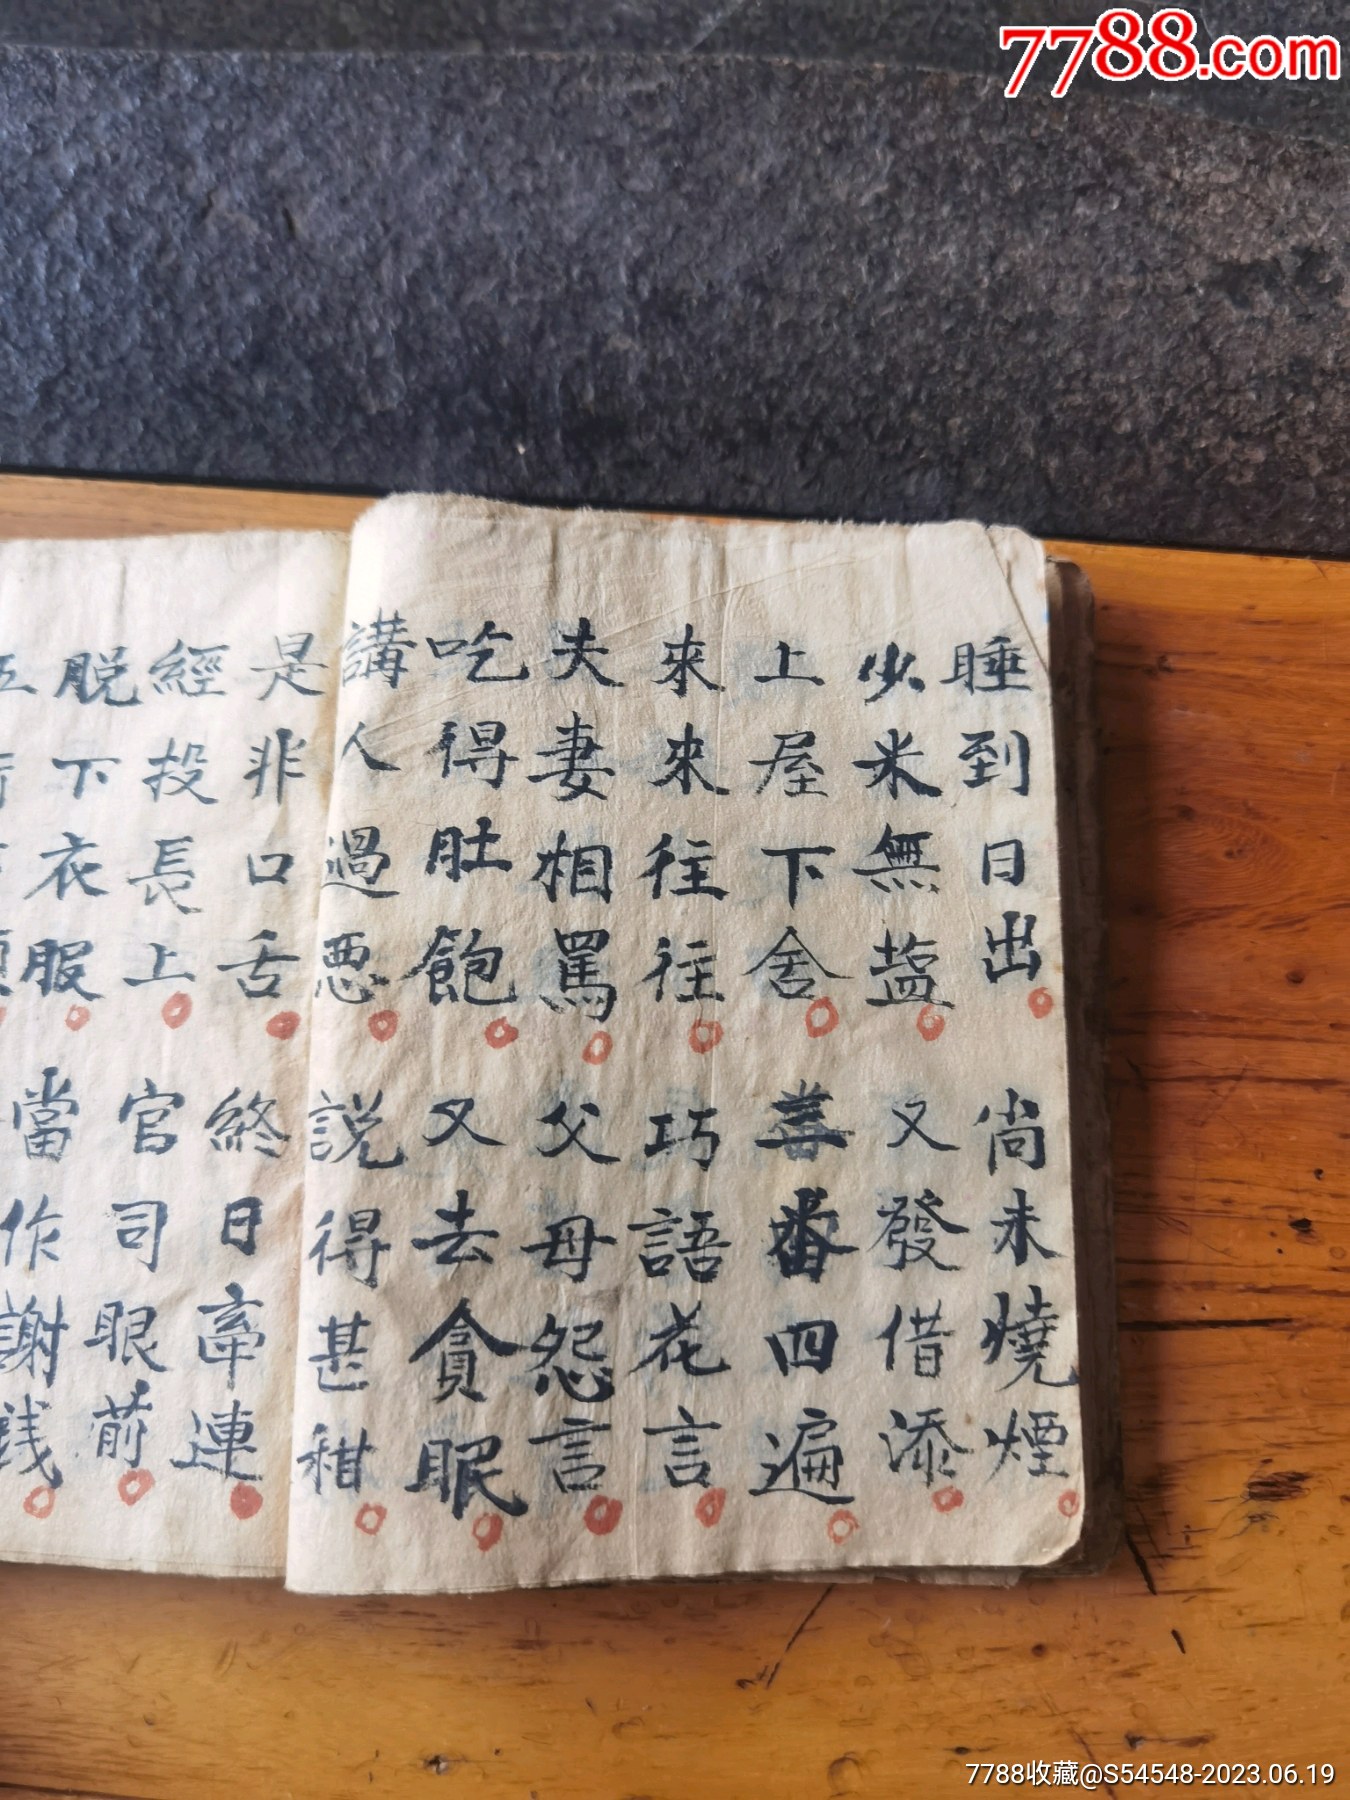 7788.com
睡到日出尚未燒煙
少米無盐又發借添
上屋下舍善番四遍
來來往往巧語花言
夫妻相罵父母怨言
吃得肚飽又去貪眠
講人過恶説得甚秓
是非口舌終日牽連
經投長上官司眼前
脱下衣服當作謝錢
7788收藏@S54548-2023.06.19